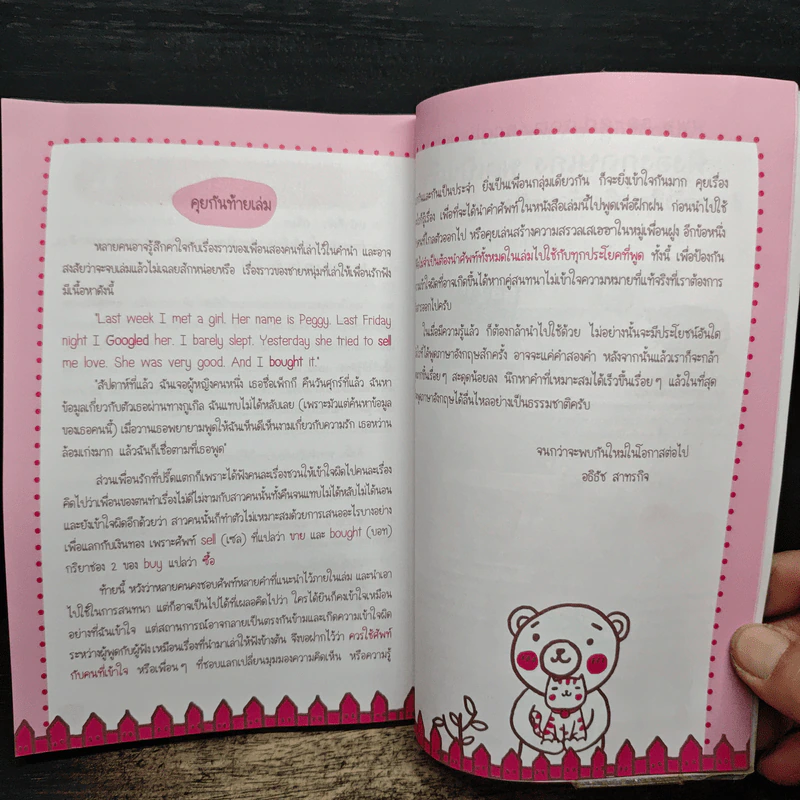 คุยกันท้ายเล่ม
หลายคนอาจรู้สึกคาใจกับเรื่องราวของเพื่อนสองคนที่เล่าไว้ในคำนำ และอาจ
สงสัยว่าจะจบเล่มแล้วไม่เฉลยสักหน่อยหรือ เรื่องราวของชายหนุ่มที่เล่าให้เพื่อนรักฟัง
มีเนื้อหาดังนี้
"Last week I met a girl. Her name is Peggy. Last Friday
night I Googled her. I barely slept. Yesterday she tried to sell
me love. She was very good. And I bought it."
"สัปดาห์ที่แล้ว ฉันเจอผู้หญิงคนหนึ่ง เธอชื่อเพ็กกี คืนวันศุกร์ที่แล้ว ฉันหา
ข้อมูลเกี่ยวกับตัวเธอผ่านทางกูเกิล ฉันแทบไม่ได้หลับเลย (เพราะมัวแต่ค้นหาข้อมูล
ของเธอคนนี้) เมื่อวานเธอพยายามพูดให้ฉันเห็นดีเห็นงามเกี่ยวกับความรัก เธอหว่าน
ล้อมเก่งมาก แล้วฉันก็เชื่อตามที่เธอพูด"
ส่วนเพื่อนรักที่ปรี๊ดแตกก็เพราะได้ฟังคนละเรื่องชวนให้เข้าใจผิดไปคนละเรื่อง
คิดไปว่าเพื่อนของตนทำเรื่องไม่ดีไม่งามกับสาวคนนั้นทั้งคืนจนแทบไม่ได้หลับไม่ได้นอน
และยังเข้าใจผิดอีกด้วยว่า สาวคนนั้นก็ทำตัวไม่เหมาะสมด้วยการเสนออะไรบางอย่าง
เพื่อแลกกับเงินทอง เพราะศัพท์ sell (เซล) ที่แปลว่า ขาย และ bought (บอท)
กริยาช่อง 2 ของ buy แปลว่า ซื้อ
ท้ายนี้ หวังว่าหลายคนคงชอบศัพท์หลายคำที่แนะนำไว้ภายในเล่ม และนำเอา
ไปใช้ในการสนทนา แต่ก็อาจเป็นไปได้ที่เผลอคิดไปว่า ใครได้ยินก็คงเข้าใจเหมือน
อย่างที่ฉันเข้าใจ แต่สถานการณ์อาจกลายเป็นตรงกันข้ามและเกิดความเข้าใจผิด
ระหว่างผู้พูดกับผู้ฟังเหมือนเรื่องที่นำมาเล่าให้ฟังข้างต้น จึงขอฝากไว้ว่า ควรใช้ศัพท์
กับคนที่เข้าใจ หรือเพื่อนๆ ที่ชอบแลกเปลี่ยนมุมมองความคิดเห็น หรือความรู้
กันและกันเป็นประจำ ยิ่งเป็นเพื่อนกลุ่มเดียวกัน ก็จะยิ่งเข้าใจกันมาก คุยเรื่อง
เพื่อที่จะได้นำคำศัพท์ในหนังสือเล่มนี้ไปพูดเพื่อฝึกฝน ก่อนนำไปใช้
ที่ไกลตัวออกไป หรือคุยเล่นสร้างความสรวลเสเฮฮาในหมู่เพื่อนฝูง อีกข้อหนึ่ง
จำเป็นต้องนำศัพท์ทั้งหมดในเล่มไปใช้กับทุกประโยคที่พูด ทั้งนี้ เพื่อป้องกัน
ที่อาจเกิดขึ้นได้หากคู่สนทนาไม่เข้าใจความหมายที่แท้จริงที่เราต้องการ
ออกไปครับ
ในเมื่อมีความรู้แล้ว ก็ต้องกล้านำไปใช้ด้วย ไม่อย่างนั้นจะมีประโยชน์อันใด
ที่ได้พูดภาษาอังกฤษสักครั้ง อาจจะแค่คำสองคำ หลังจากนั้นแล้วเราก็จะกล้า
ขึ้นเรื่อยๆ สะดุดน้อยลง นึกหาคำที่เหมาะสมได้เร็วขึ้นเรื่อยๆ แล้วในที่สุด
ภาษาอังกฤษได้ลื่นไหลอย่างเป็นธรรมชาติครับ
จนกว่าจะพบกันใหม่ในโอกาสต่อไป
อธิธัช สาทรกิจ